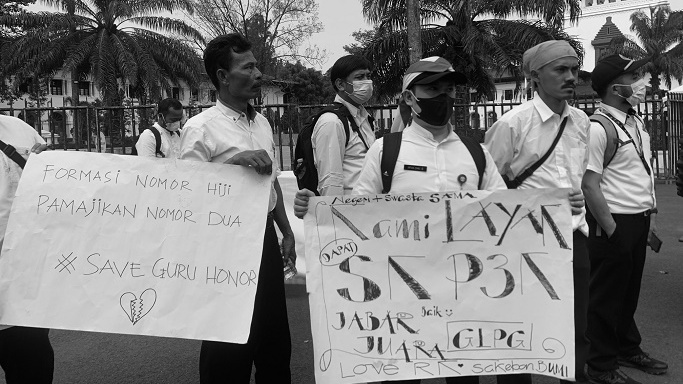 FORMASI NOMOR HIJI
PAMAJIKAN NOMOR DUA
# SAVE GURU HONOR
Negeri + swasta SAMA
Kami LAYAK
DAPAT
SK P3K
JABAR baik
JUARA GLPG
LOVE RK sakebon BUMI